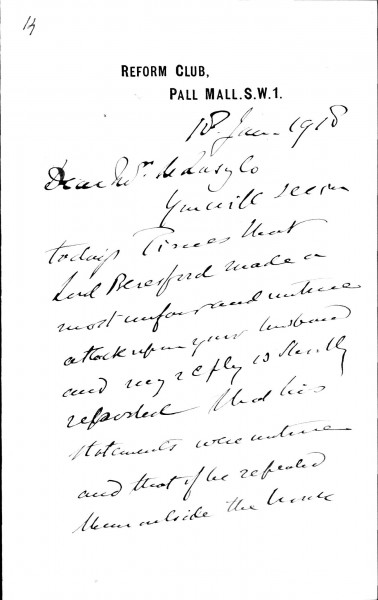 14
REFORM CLUB,
PALL MALL. S.W.1.
18 Jan. 1918
Dear Mrs. de Laszlo
You will see in
todays Times that
Lord Beresford made a
most unfair and untrue
attack upon your husband
and my reply is shortly
reported that his
statements were untrue
and that if he repeated
them outside the house